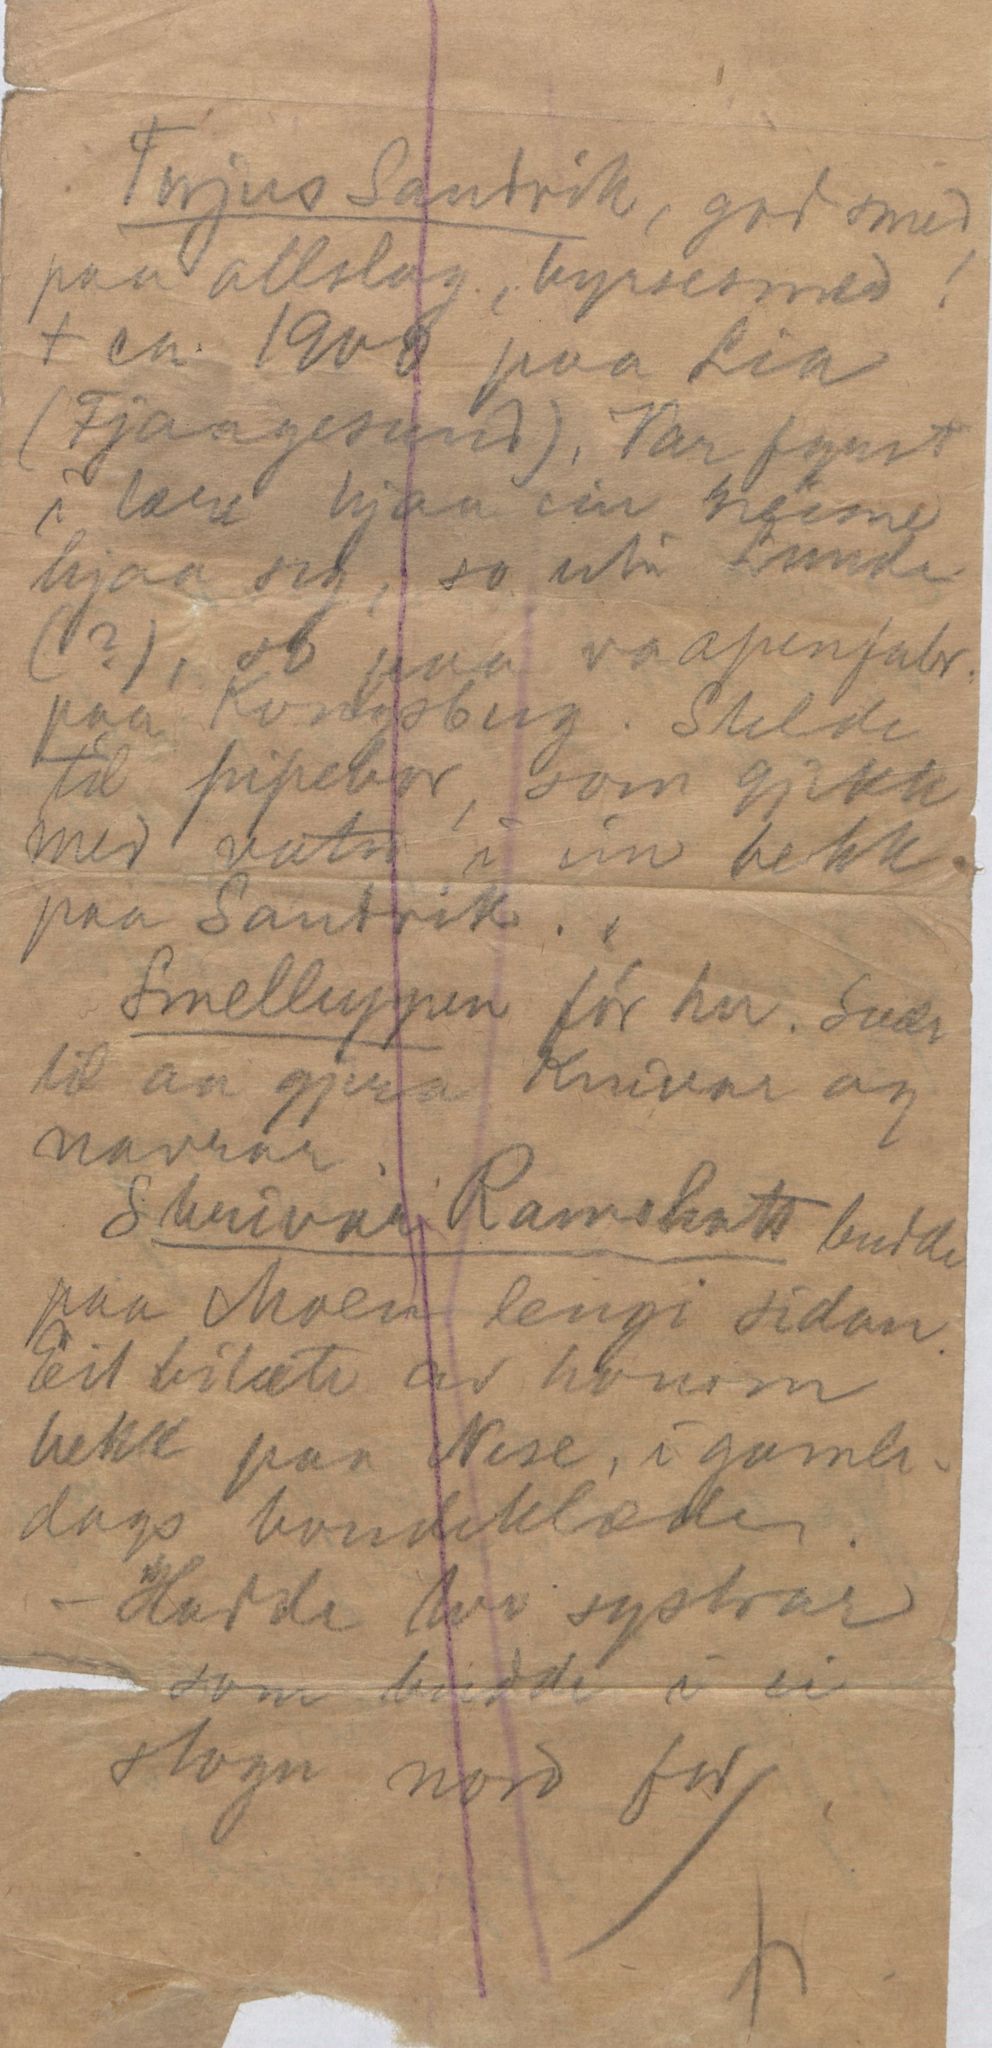 Torjus Sandvik, god smed
paa allslag, byrsesmed!
+ ca. 1908 paa Lia
(Fjaagesund). Var fyrst
i lære hjaa ein heime
hjaa seg, so uti Lunde
(?), so paa vaapenfabr.
paa Kongsberg. Stelde
til pipebor, som gjekk
med vatn i ein bekk
paa Sandvik.
Smelluppen fór her. Svær
til aa gjera knivar og
navrar.
Skrivar Ramshatt budde
paa Moen lengi sidan.
Eit bilæte av honom
hekk paa Nese, i gamle-
dags bondeklæde.
- Hadde tvo systrar
som budde i ei
stogu nord for